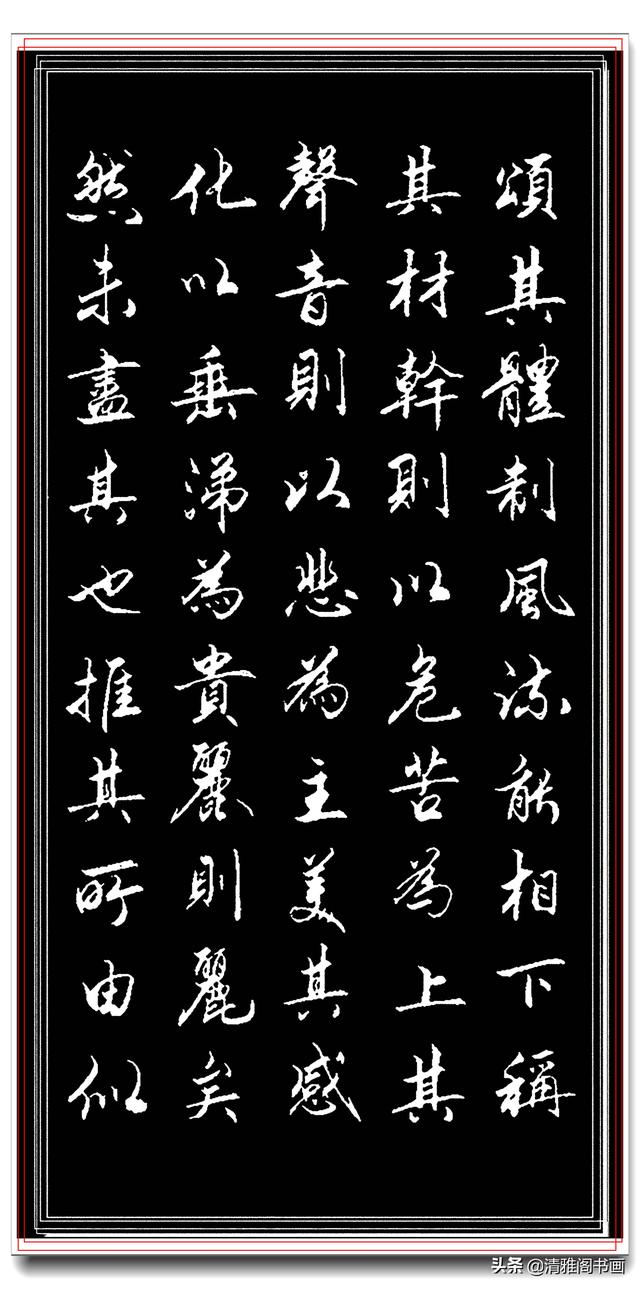 頌其體制風流能相下稱
其材幹則以危苦為上其
聲音則以悲為主美其感
化以垂涕為貴麗則麗矣
然未盡其也推其所由似
头条 @清雅阁书画